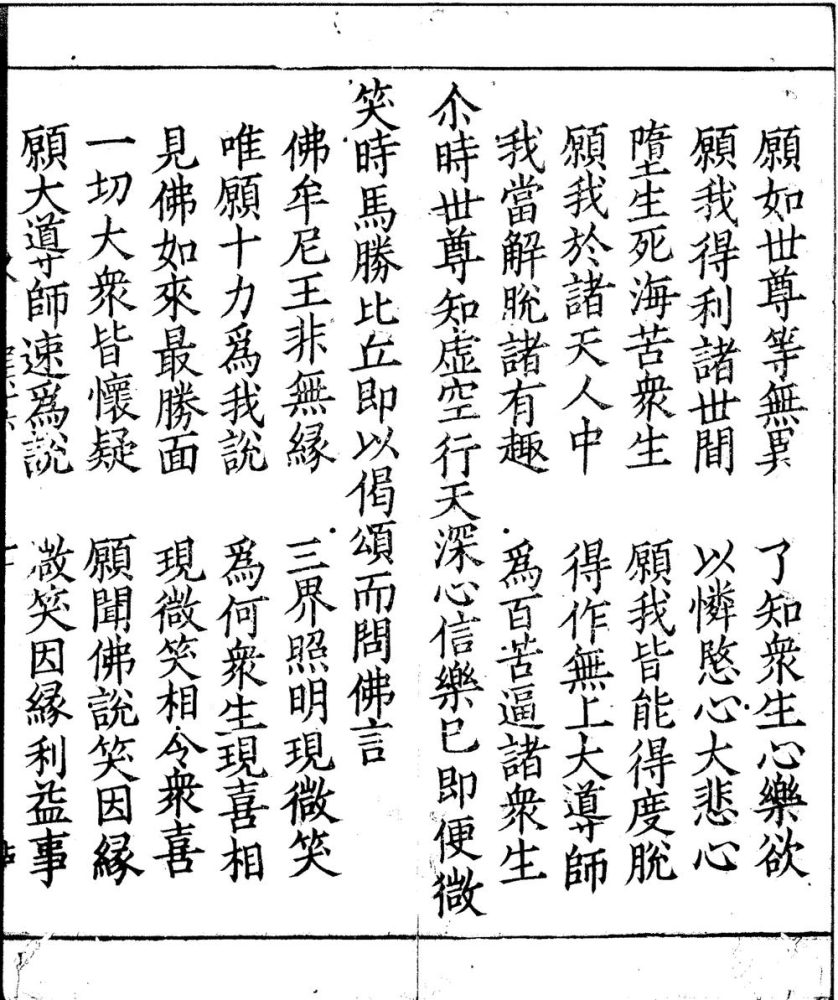 願如世尊等無異　了知衆生心樂欲
願我得利諸世間　以憐愍心大悲心
墮生死海苦衆生　願我皆能得度脫
願我於諸天人中　得作無上大導師
我當解脫諸有趣　爲百苦逼諸衆生
尒時世尊知虛空行天深心信樂已即便微
笑時馬勝比丘即以偈頌而問佛言
佛牟尼王非無縁　三界照明現微笑
唯願十力爲我說　爲何衆生現喜相
見佛如來最勝面　現微笑相令衆喜
一切大衆皆懷疑　願聞佛說笑因縁
願大導師速爲說　微笑因縁利益事